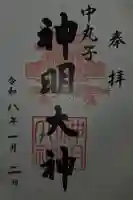 奉拝
中丸子
神明大神
令和八年一月二日